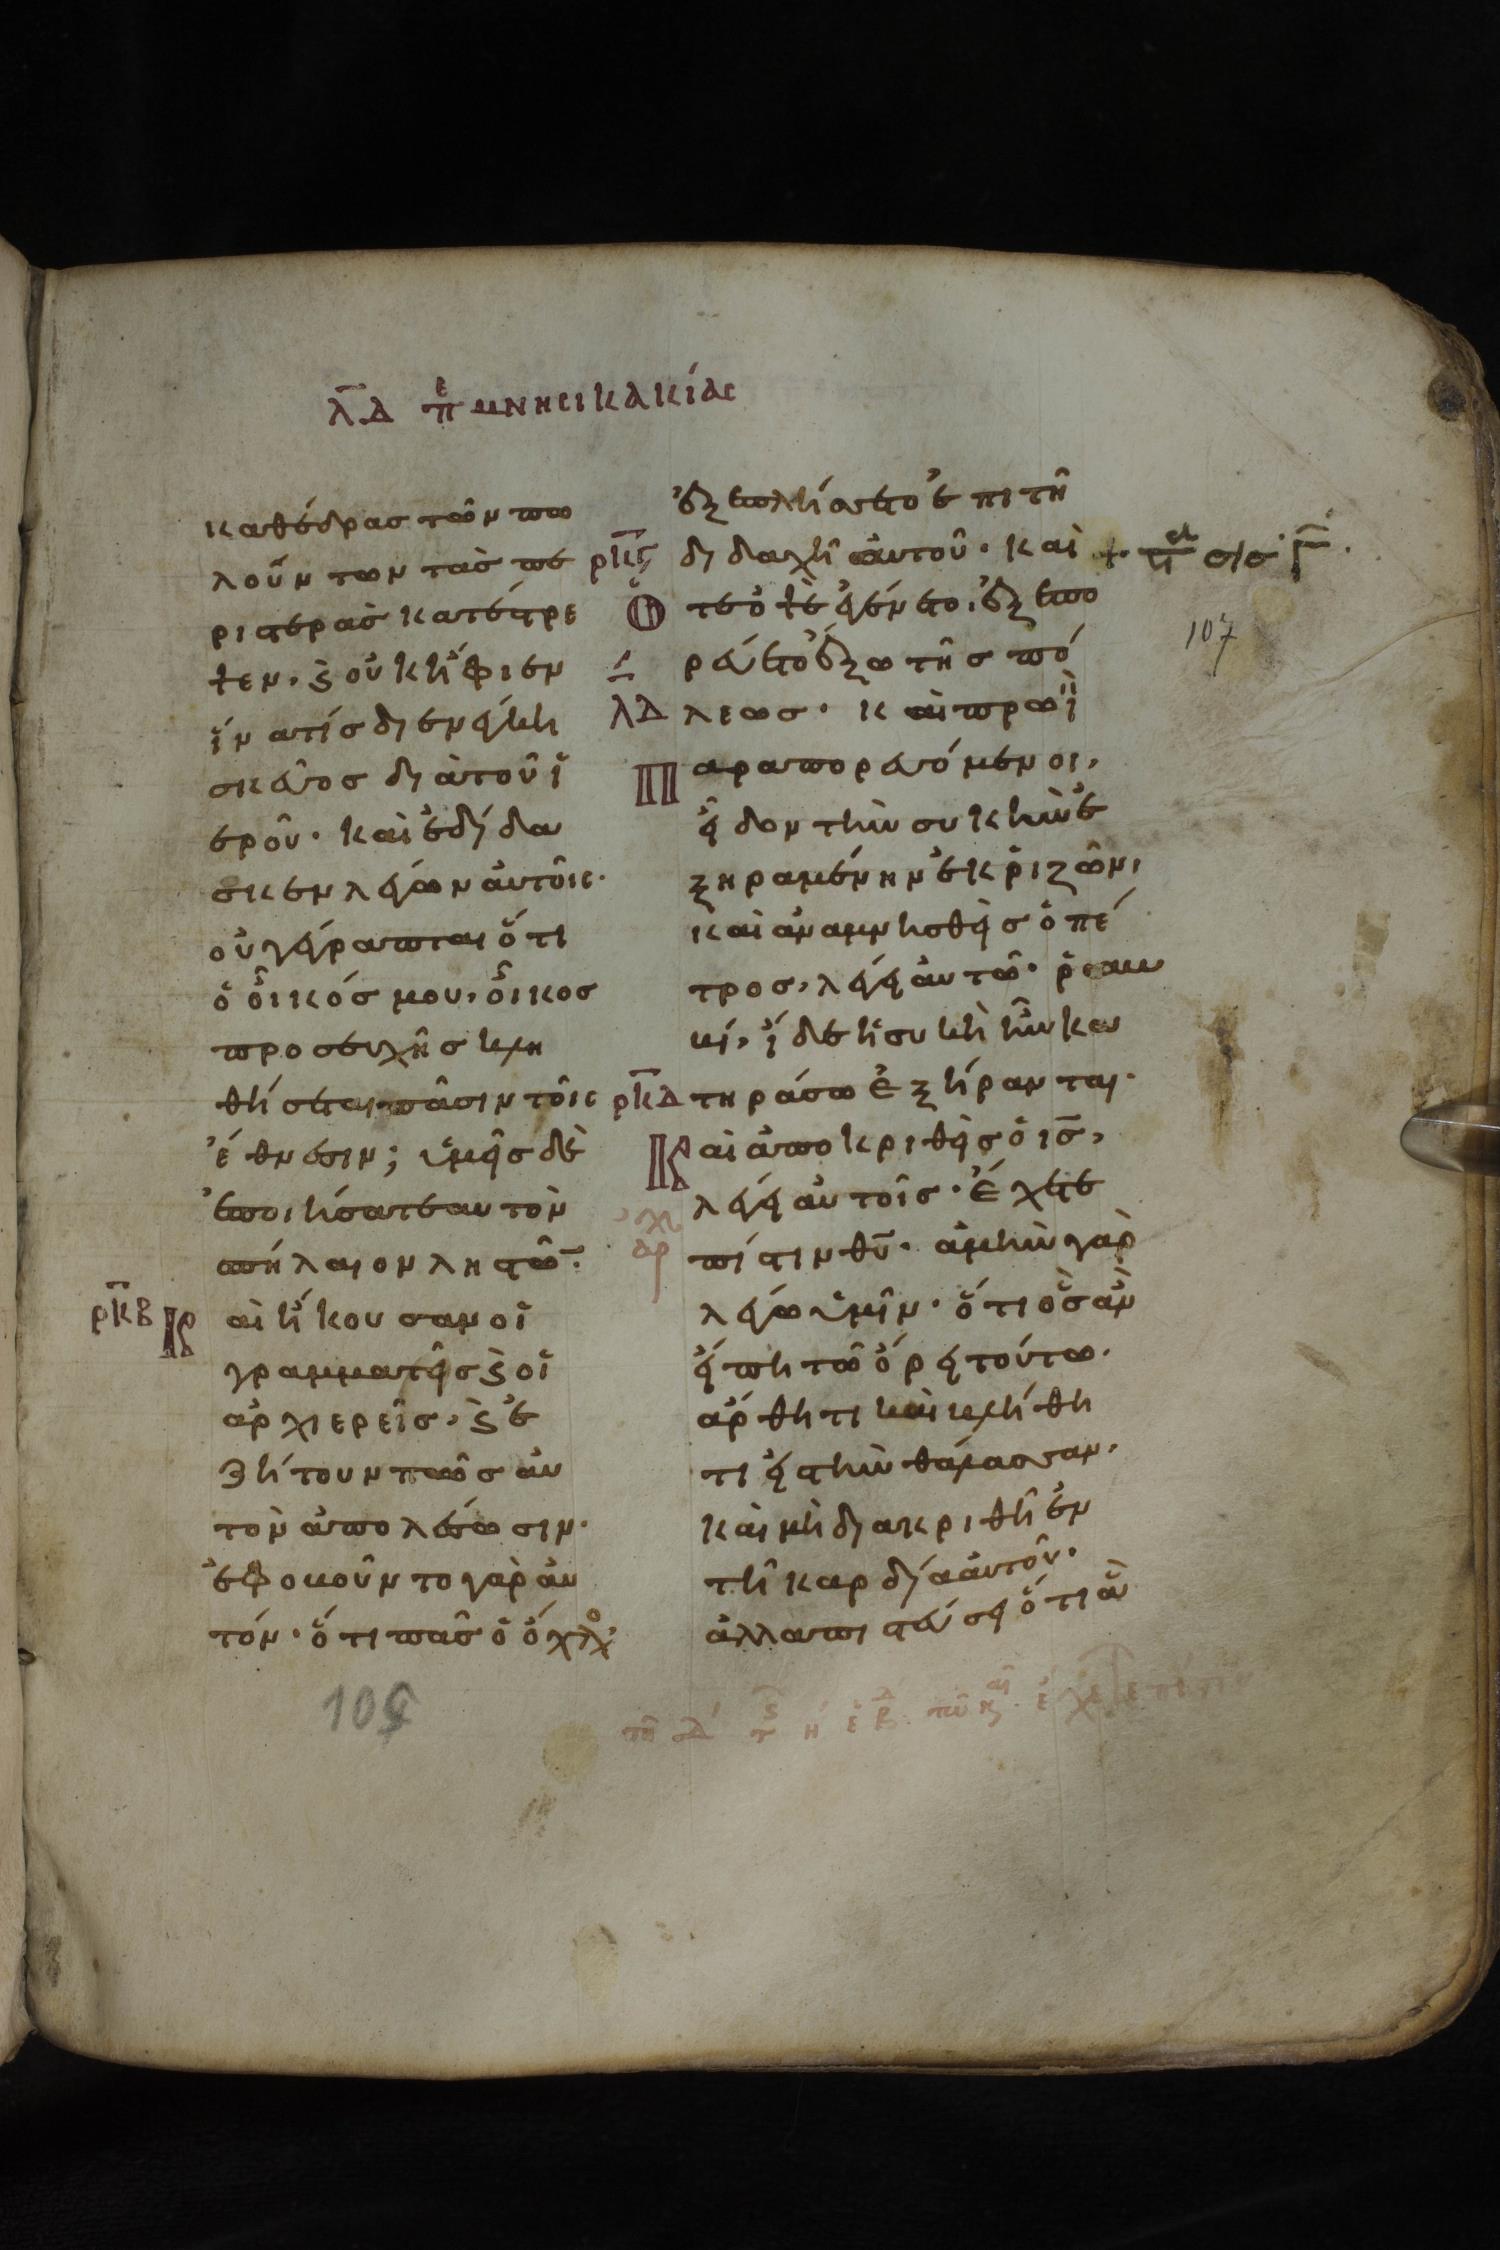 λδ πε μνησικακίας
καθέδρας τῶν πω
λούντων τὰς πε
ριστερὰς κατέστρε
ψεν, ϗ οὐκ ἤφιεν
ἵνα τίς διενέγκη
σκεῦος διὰ τοῦ ἱ
εροῦ· καὶ ἐδίδα
σκεν λέγων αὐτοῖς·
οὐ γέγραπται ὅτι
ὁ οἶκός μου, οἶκος
προσευχῆς κλη
θήσεται πᾶσιν τοῖς
ἔθνεσιν; ὑμεῖς δὲ
ἐποιήσατε αυτὸν
σπήλαιον ληστῶ̅·
ρκβ Καὶ ἤκουσαν οἱ
γραμματεῖς ϗ οἱ
ἀρχιερεῖς, ϗ ἐ
ζήτουν πῶς αὐ
τὸν ἀπολέσωσιν·
ἐφοβοῦντο γὰρ αὐ
τόν· ὅτι πᾶς ὁ ὄχλο
ἐξεπλήσσετο ἐπὶ τῆ
διδαχῆ αὐτοῦ· καὶ
Ὅτε ὀψὲ ἐγένετο, ἐξεπο
ρεύετο ἔξω τῆς πό
λδ λεως· καὶ πρωῒ
Παραπορευόμενοι,
εἶδον τὴν συκῆν ἐ
ξηραμένην ἐκ ῥιζῶν,
καὶ ἀναμνησθεὶς ὁ πέ
τρος, λέγει αυτῶ· ῥαβ
βί, ἴδε ἡ συκῆ ἣν κα
ρκδ τηράσω ἐξήρανται·
Καὶ ἀποκριθεὶς ὁ ις̅,
λέγει αὐτοῖς· ἔχετε
πίστιν θυ̅· ἀμὴν γὰρ
λέγω ὑμῖν· ὅτι ὃς ἂν
εἴπη τῶ ὄρει τούτω·
ἄρθητι καὶ βλήθη
τι εἰς τὴν θάλασσαν,
καὶ μὴ διακριθῆ ἐν
τῆ καρδία αὐτοῦ·
ἀλλὰ πιστεύσει ὅτι ἃ
107